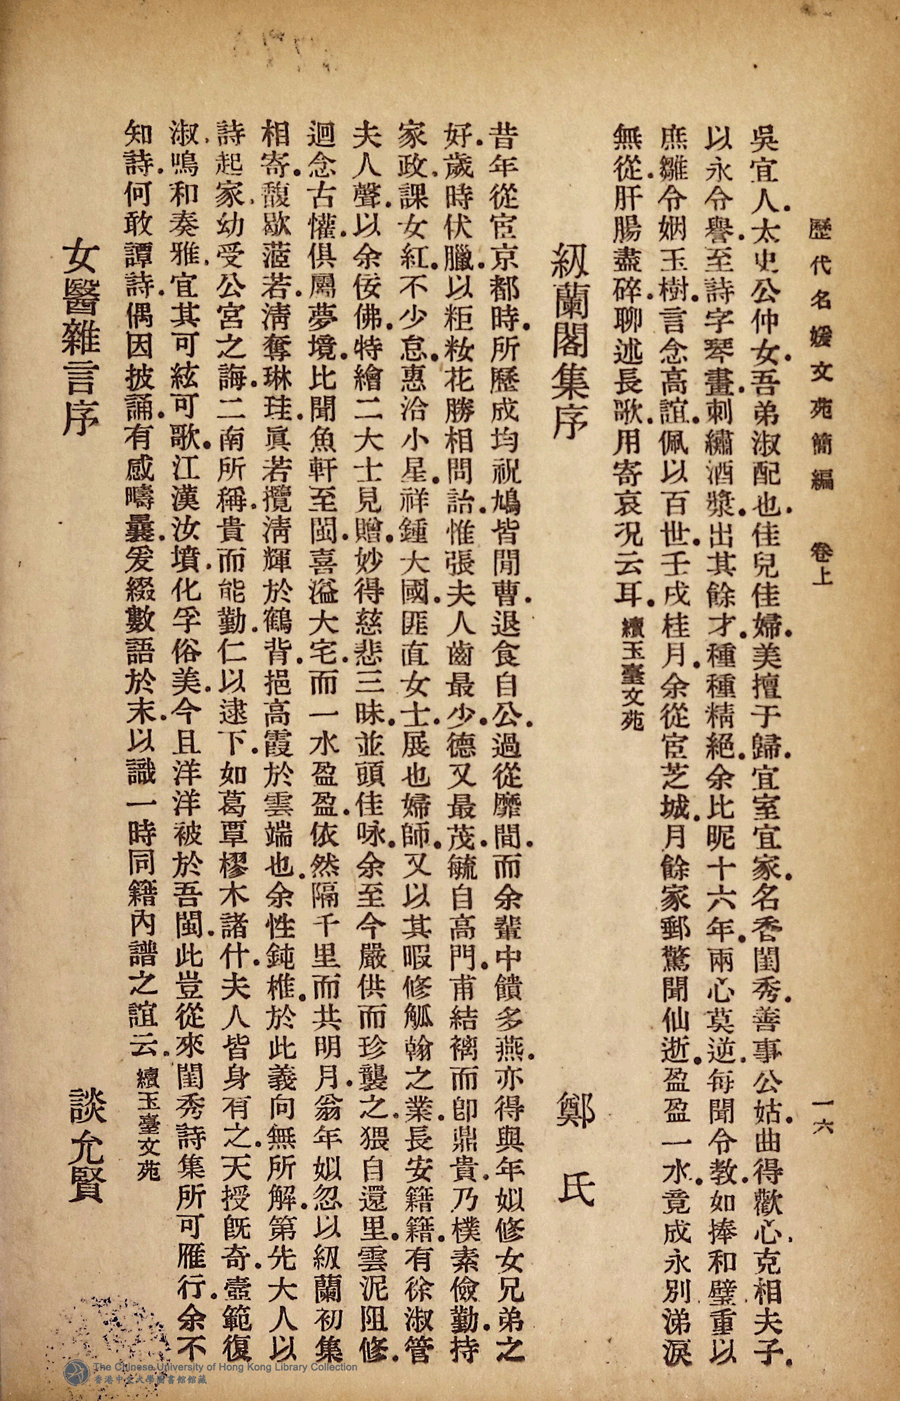 歷代名媛文苑簡編　卷上　一六
吳宜人．太史公仲女．吾弟淑配也．佳兒佳婦．美擅于歸．宜室宜家．名香閨秀．善事公姑．曲得歡心．克相夫子．
以永令譽．至詩字琴畫．刺繡酒漿．出其餘才．種種精絕．余比昵十六年．兩心莫逆．每聞令教．如捧和璧．重以
庶雛令姻玉樹．言念高誼．佩以百世．壬戌桂月．余從宦芝城．月餘家郵驚聞仙逝．盈盈一水．竟成永別．涕淚
無從．肝腸盡碎．聊述長歌．用寄哀況云耳．續玉臺文苑
紉蘭閣集序　鄭氏
昔年從宦京都時．所歷成均祝鳩．皆閒曹．退食自公．過從靡間．而余輩中饋多燕．亦得與年姒修女兄弟之
好．歲時伏臘．以粔籹花勝相問詒．惟張夫人齒最少．德又最茂．毓自高門．甫結褵而卽鼎貴．乃樸素儉勤．持
家政．課女紅．不少怠．惠洽小星．祥鍾大國．匪直女士．展也婦師．又以其暇修觚翰之業．長安籍籍．有徐淑管
夫人聲．以余佞佛．特繪二大士見贈．妙得慈悲三昧．並頭佳咏．余至今嚴供而珍襲之．猥自還里．雲泥阻修．
迴念古懽．俱屬夢境．比聞魚軒至閩．喜溢大宅．而一水盈盈．依然隔千里而共明月．翁年姒忽以紉蘭初集
相寄．馥歇蒞若．淸奪琳珪．眞若攬淸輝於鶴背．挹高霞於雲端也．余性鈍椎．於此義向無所解．第先大人以
詩起家．幼受公宮之誨．二南所稱．貴而能勤．仁以逮下．如葛覃樛木諸什．夫人皆身有之．天授旣奇．壼範復
淑．鳴和奏雅．宜其可絃可歌．江漢汝墳．化孚俗美．今且洋洋被於吾閩．此豈從來閨秀詩集所可雁行．余不
知詩．何敢譚詩．偶因披誦．有感疇曩．爰綴數語於末．以識一時同籍內譜之誼云．續玉臺文苑
女醫雜言序　談允賢
The Chinese University of Hong Kong Library Collection
香港中文大學圖書館館藏